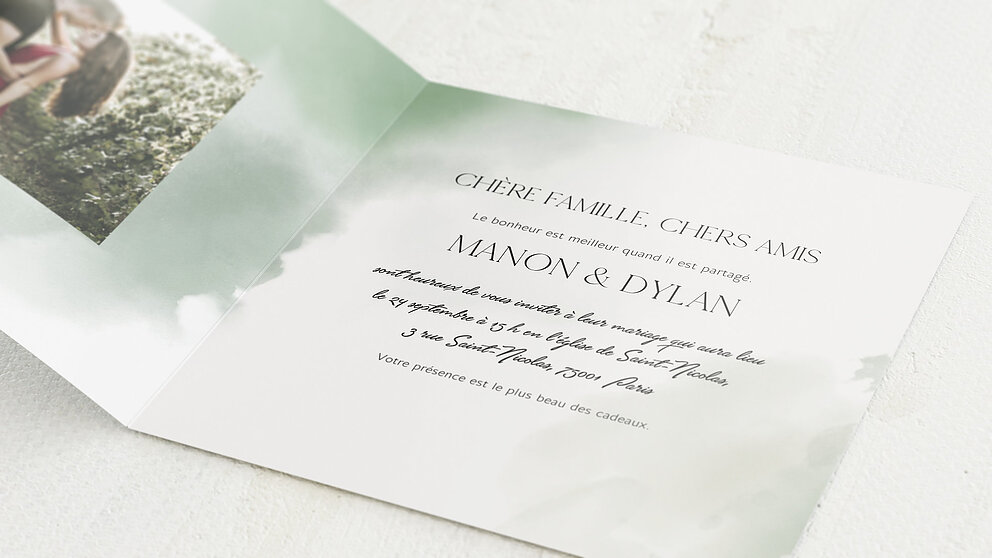 CHÈRE FAMILLE, CHERS AMIS
Le bonheur est meilleur quand il est partagé.
MANON & DYLAN
sont heureux de vous inviter à leur mariage qui aura lieu
le 24 septembre à 15 h en l'église de Saint-Nicolas,
3 rue Saint-Nicolas, 75001 Paris
Votre présence est le plus beau des cadeaux.